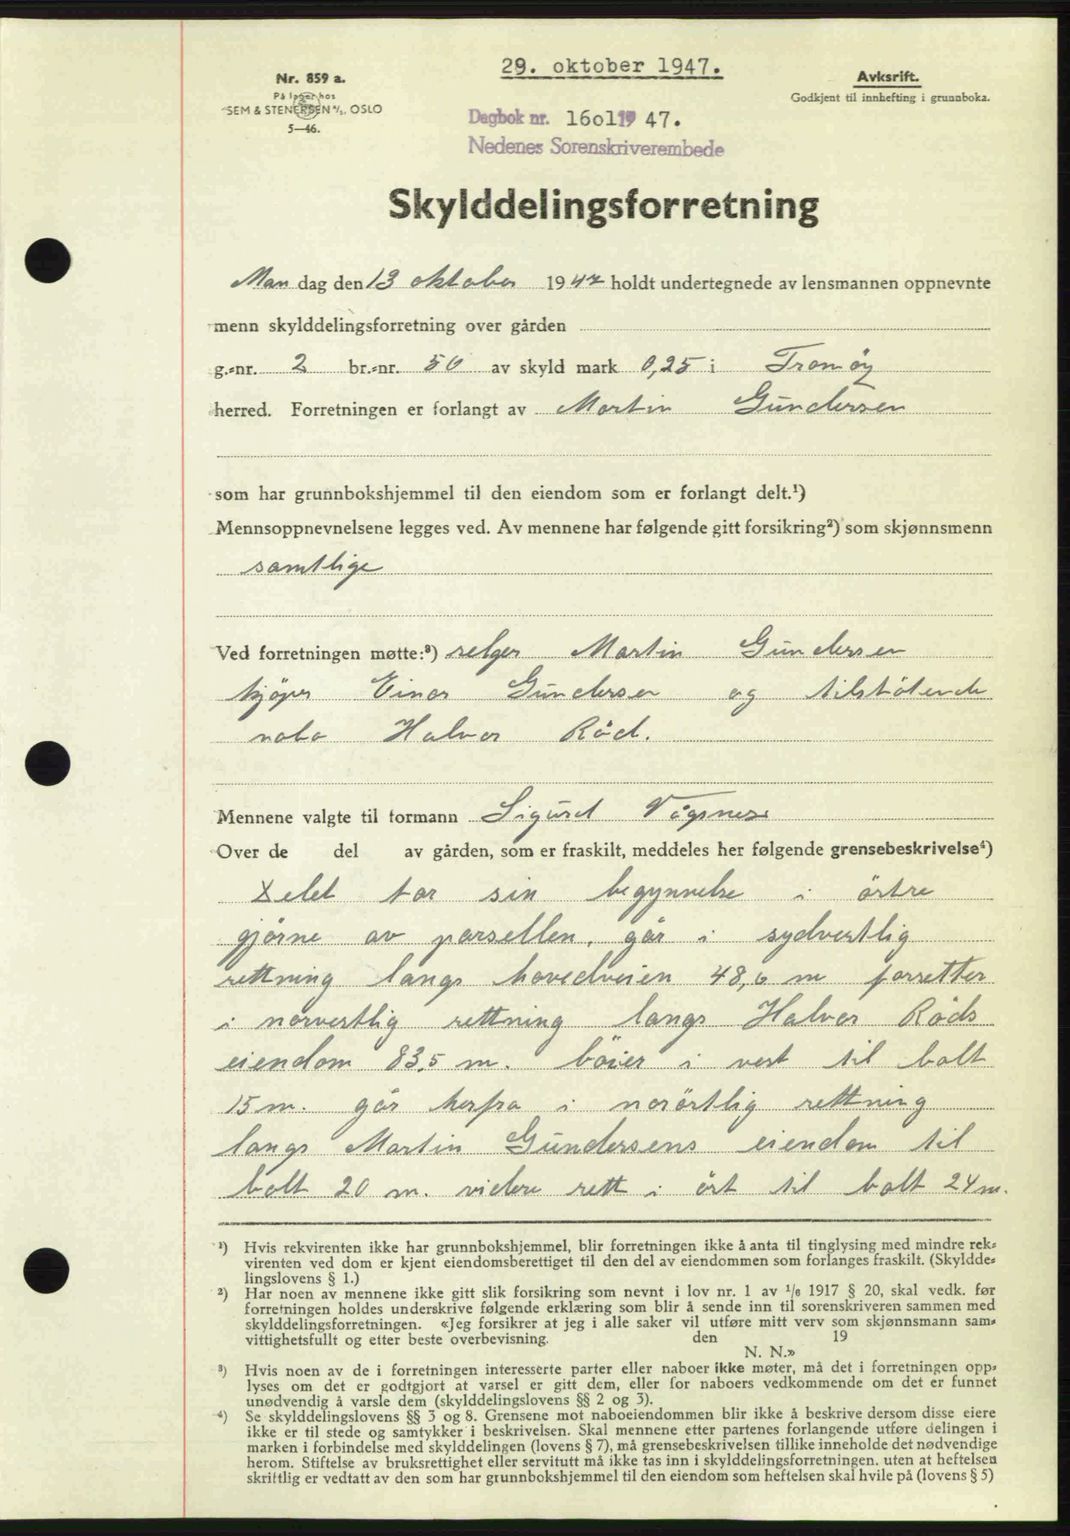 29. oktober 1947.
Nr. 859 a.
På lager hos
SEM & STENERSEN A/S, OSLO
5—46.
Avskrift.
Godkjent til innhefting i grunnboka.
Dagbok nr. 1601 19 47.
Nedenes Sorenskriverembede
Skylddelingsforretning
Man dag den 13 oktober 1947 holdt undertegnede av lensmannen oppnevnte
menn skylddelingsforretning over gården
g.-nr. 2 br.-nr. 50 av skyld mark 0,25 i Tromöy
herred. Forretningen er forlangt av Martin Gundersen
som har grunnbokshjemmel til den eiendom som er forlangt delt.¹)
Mennsoppnevnelsene legges ved. Av mennene har følgende gitt forsikring²) som skjønnsmenn
samtlige
Ved forretningen møtte:³) selger Martin Gundersen
kjöper Einar Gundersen og tilstötende
nabo Halvor Röd.
Mennene valgte til formann Sigurd Vågsnes
Over de del av gården, som er fraskilt, meddeles her følgende grensebeskrivelse⁴)
Delet tar sin begynnelse i östre
hjörne av parsellen, går i sydvestlig
rettning langs hovedveien 48,0 m forsetter
i norvestlig rettning langs Halvor Röds
eiendom 83,5 m. böier i vest til bolt
15 m. går herfra i norörtlig rettning
langs Martin Gundersens eiendom til
bolt 20 m. videre rett i öst til bolt 24 m.
¹) Hvis rekvirenten ikke har grunnbokshjemmel, blir forretningen ikke å anta til tinglysing med mindre rek-
virenten ved dom er kjent eiendomsberettiget til den del av eiendommen som forlanges fraskilt. (Skyldde-
lingslovens § 1.)
²) Har noen av mennene ikke gitt slik forsikring som nevnt i lov nr. 1 av 1/6 1917 § 20, skal vedk. før
forretningen holdes underskrive følgende erklæring som blir å sende inn til sorenskriveren sammen med
skylddelingsforretningen. «Jeg forsikrer at jeg i alle saker vil utføre mitt verv som skjønnsmann sam-
vittighetsfullt og etter beste overbevisning. den 19
N. N.»
³) Hvis noen av de i forretningen interesserte parter eller naboer ikke møter, må det i forretningen opp-
lyses om det er godtgjort at varsel er gitt dem, eller for naboers vedkommende om det er funnet
unødvendig å varsle dem (skylddelingslovens §§ 2 og 3).
⁴) Se skylddelingslovens §§ 3 og 8. Grensene mot naboeiendommen blir ikke å beskrive dersom disse eiere
ikke er til stede og samtykker i beskrivelsen. Skal mennene etter partenes forlangende utføre delingen i
marken i forbindelse med skylddelingen (lovens § 7), må grensebeskrivelsen tillike inneholde det nødvendige
herom. Stiftelse av bruksrettighet eller servitutt må ikke tas inn i skylddelingsforretningen, uten at heftelsen
skriftlig er vedtatt av den som har grunnbokshjemmel til den eiendom som heftelsen skal hvile på (lovens § 5)